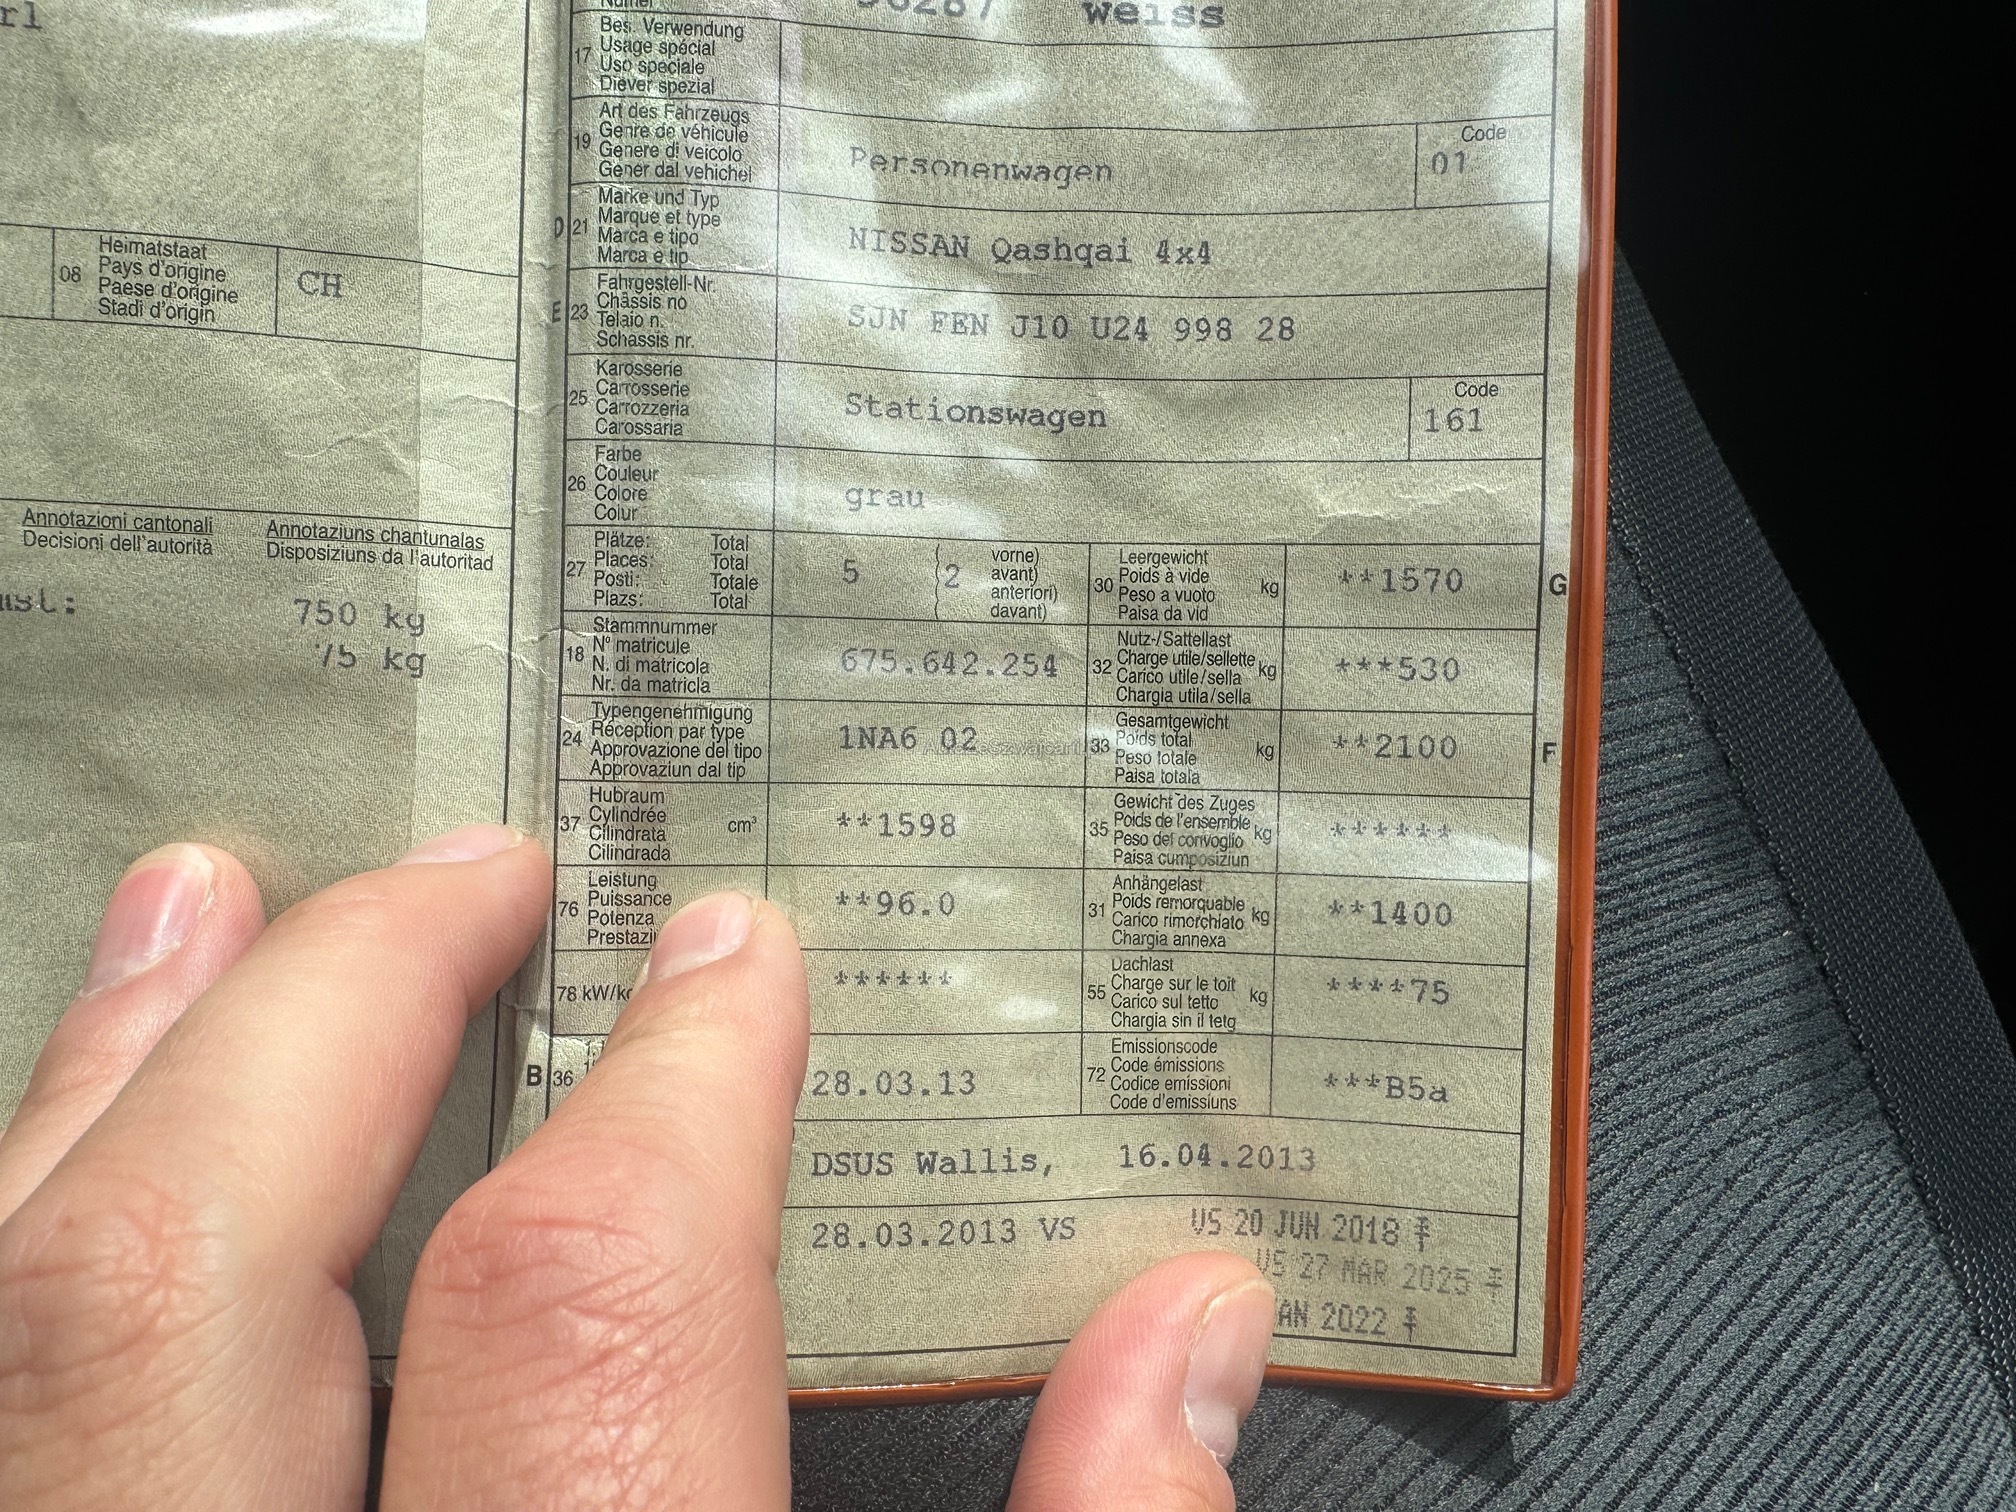 weiss
17 Bes. Verwendung
Usage spécial
Uso speciale
Diever spezial
19 Art des Fahrzeugs
Genre de véhicule
Genere di veicolo
Gener dal vehichel
Personenwagen
Code
01
D 21 Marke und Typ
Marque et type
Marca e tipo
Marca e tip
NISSAN Qashqai 4x4
08 Heimatstaat
Pays d'origine
Paese d'origine
Stadi d'origin
CH
E 23 Fahrgestell-Nr.
Châssis no
Telaio n.
Schassis nr.
SJN FEN J10 U24 998 28
25 Karosserie
Carrosserie
Carrozzeria
Carossaria
Stationswagen
Code
161
26 Farbe
Couleur
Colore
Colur
grau
Annotazioni cantonali
Decisioni dell'autorità
Annotaziuns chantunalas
Disposiziuns da l'autoritad
750 kg
75 kg
27 Plätze: Total
Places: Total
Posti: Totale
Plazs: Total
5 (2 vorne)
avant)
anteriori)
davant)
30 Leergewicht
Poids à vide
Peso a vuoto
Paisa da vid
kg
**1570
G
18 Stammnummer
N° matricule
N. di matricola
Nr. da matricla
675.642.254
32 Nutz-/Sattellast
Charge utile/sellette
Carico utile/sella
Chargia utila/sella
kg
***530
24 Typengenehmigung
Réception par type
Approvazione del tipo
Approvaziun dal tip
1NA6 02
33 Gesamtgewicht
Poids total
Peso totale
Paisa totala
kg
**2100
F
37 Hubraum
Cylindrée
Cilindrata
Cilindrada
cm³
**1598
35 Gewicht des Zuges
Poids de l'ensemble
Peso del convoglio
Paisa cumposiziun
kg
******
76 Leistung
Puissance
Potenza
**96.0
31 Anhängelast
Poids remorquable
Carico rimorchiato
Chargia annexa
kg
**1400
78
******
55 Dachlast
Charge sur le toit
Carico sul tetto
Chargia sin il tetg
kg
****75
B 36
28.03.13
72 Emissionscode
Code émissions
Codice emissioni
Code d'emissiuns
***B5a
DSUS Wallis, 16.04.2013
28.03.2013 VS
VS 20 JUN 2018
VS 27 MAR 2025
2022